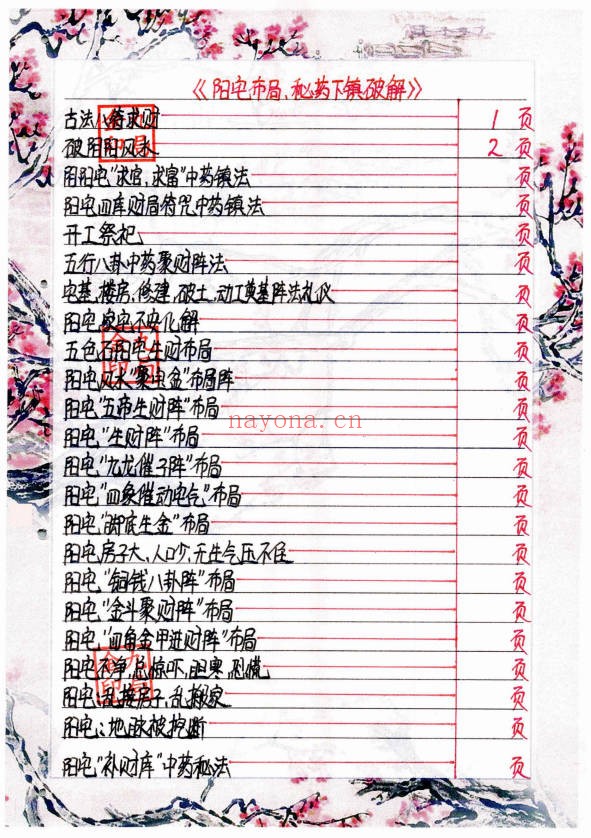 《阳宅布局、秘药下镇、破解》
古法八符求财 1 页
破阴阳风水 2 页
阴阳宅"求官、求富"中药镇法 页
阳宅四库财局符咒中药镇法 页
开工祭祀 页
五行八卦中药聚财阵法 页
宅基、楼房、修建、破土、动工奠基阵法礼仪 页
阳宅家宅不安化解 页
五色石阳宅生财布局 页
阳宅风水"聚串金"布局阵 页
阳宅"五帝生财阵"布局 页
阳宅"生财阵"布局 页
nayona.cn
阳宅"九龙催子阵"布局 页
阳宅"四象催动宅气"布局 页
阳宅"脚底生金"布局 页
阳宅房子大、人口少、无生气压不住 页
阳宅"铜钱八卦阵"布局 页
阳宅"金斗聚财阵"布局 页
阳宅"四角金甲进财阵"布局 页
阳宅不净、总惊吓、胆寒、恐慌 页
阳宅:乱接房子、乱搬家 页
阳宅:地脉被挖断 页
阳宅"补财库"中药秘法 页